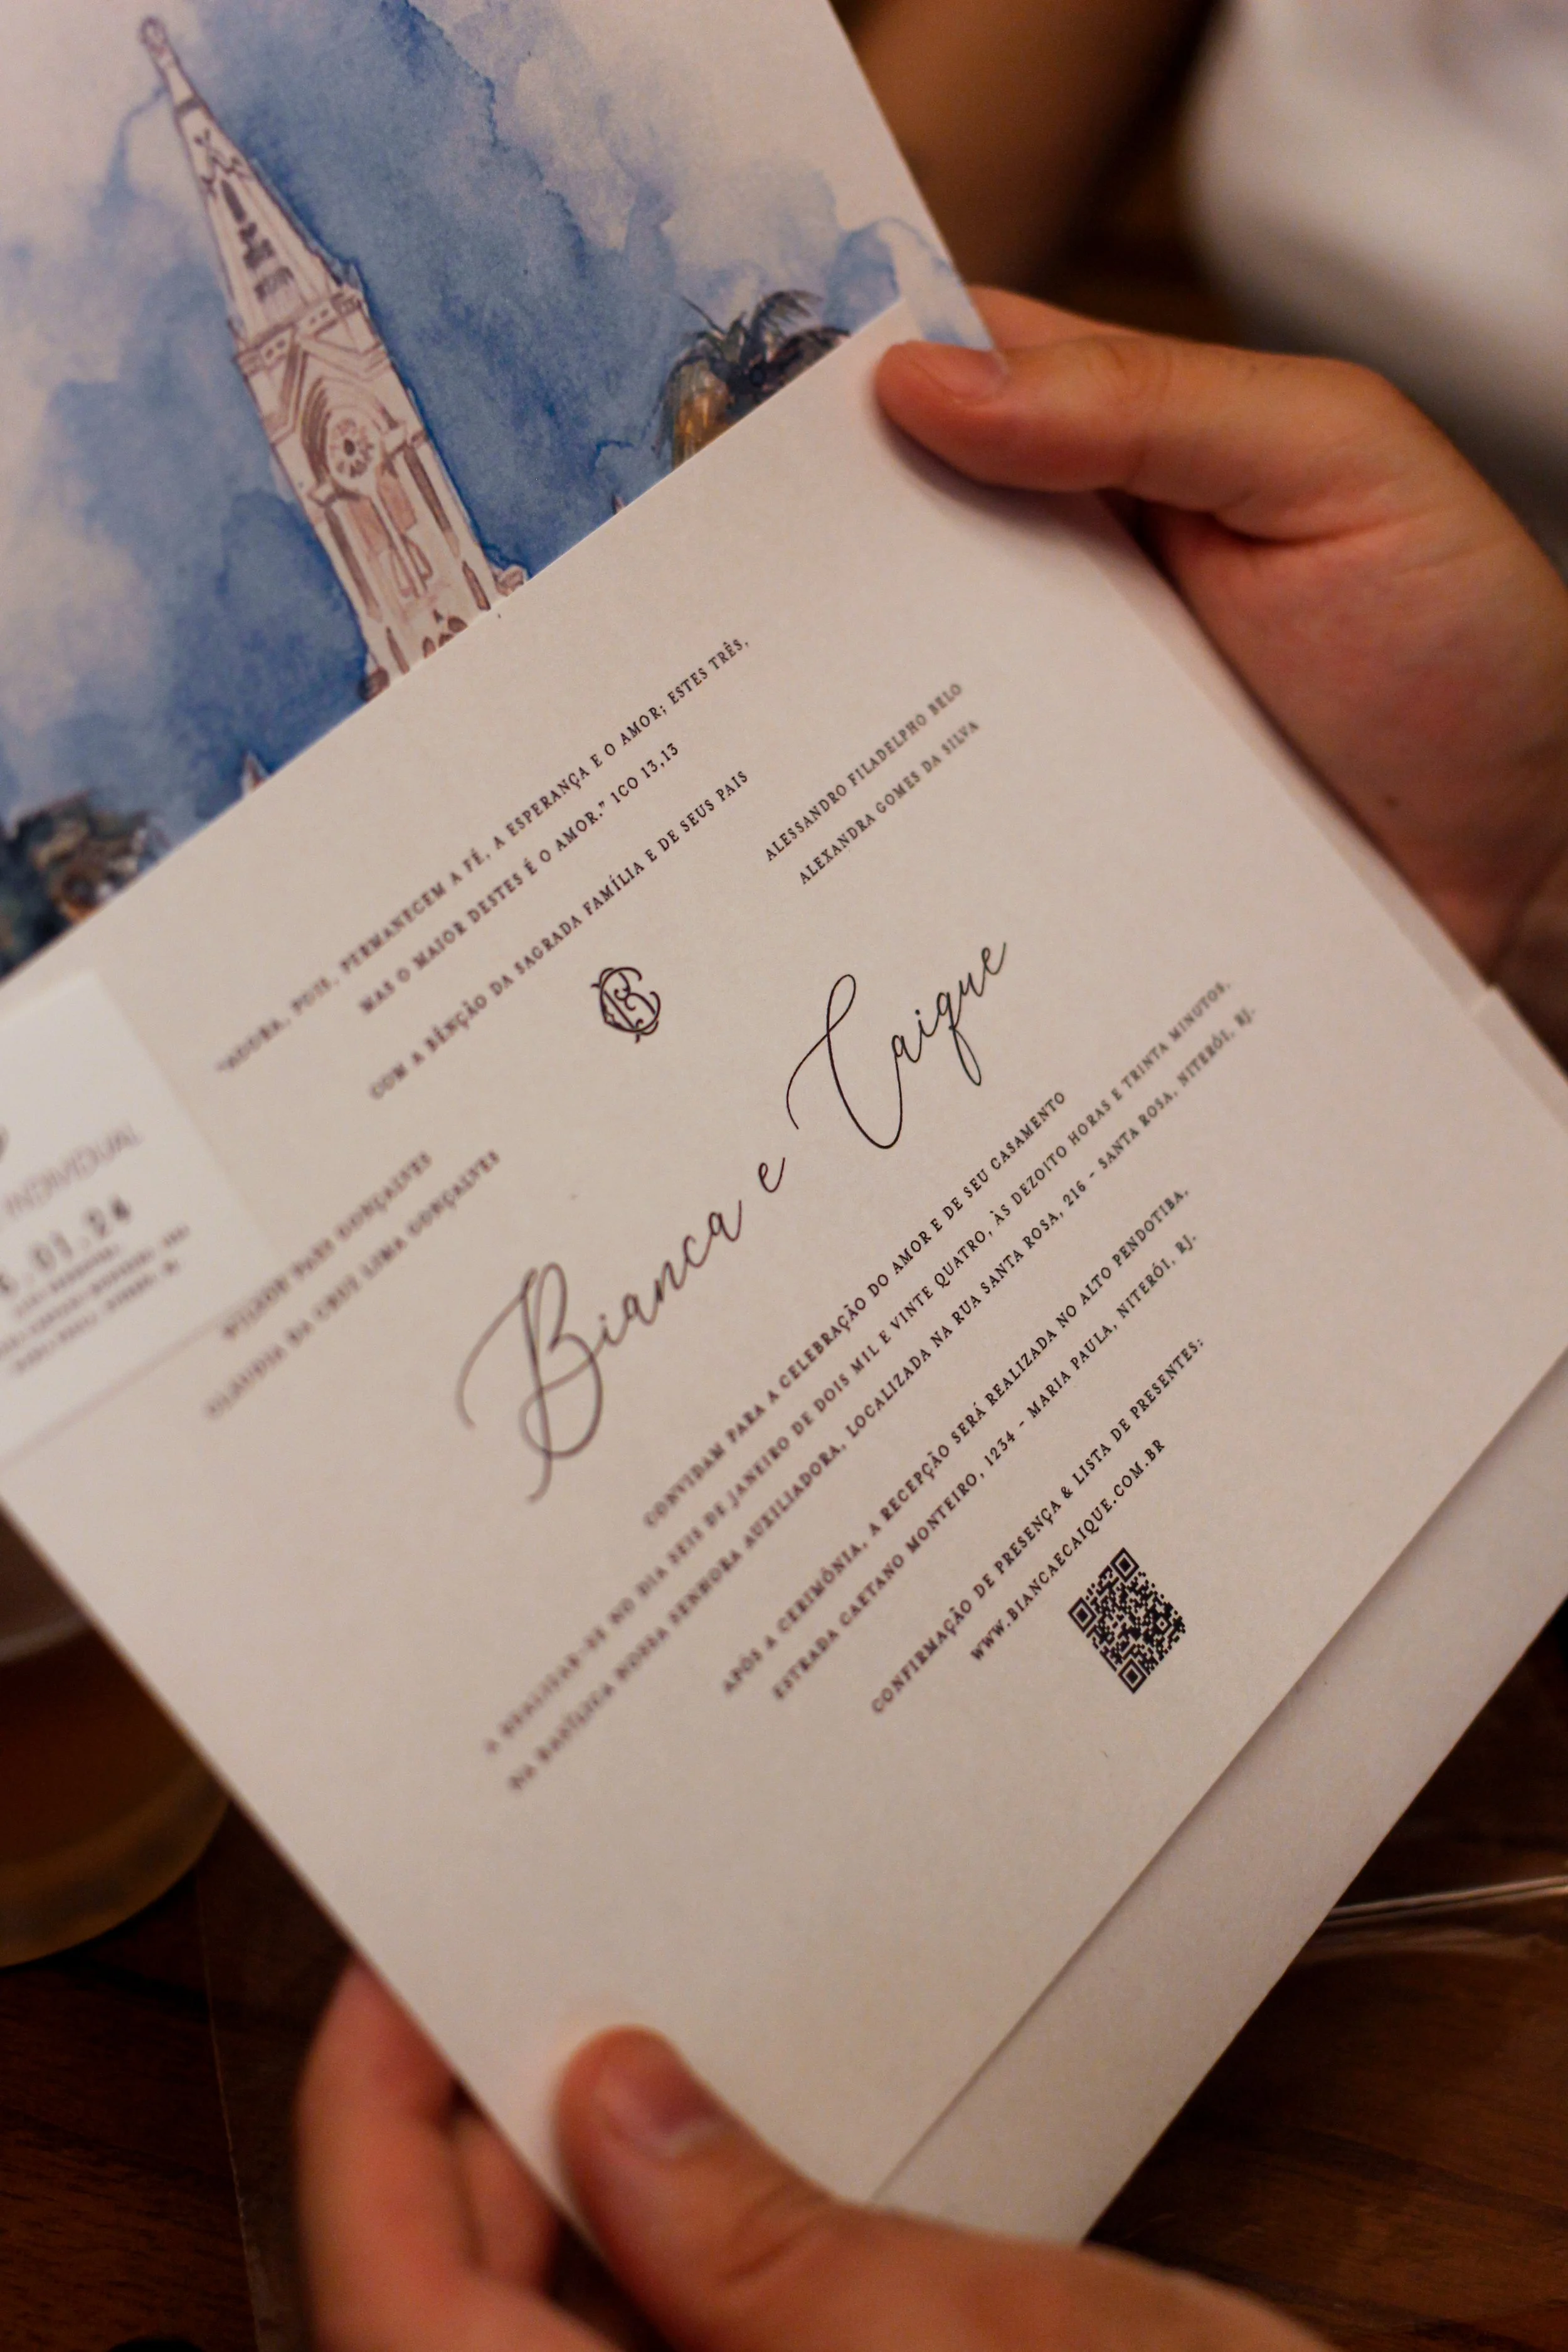 "AGORA, POIS, PERMANECEM A FÉ, A ESPERANÇA E O AMOR; ESTES TRÊS,
MAS O MAIOR DESTES É O AMOR." 1CO 13,13
COM A BÊNÇÃO DA SAGRADA FAMÍLIA E DE SEUS PAIS
PAES GONÇALVES
CLAUDIA DA CRUZ LIMA GONÇALVES
ALESSANDRO FILADELPHO BELO
ALEXANDRA GOMES DA SILVA
Bianca e Caique
CONVIDAM PARA A CELEBRAÇÃO DO AMOR E DE SEU CASAMENTO
A REALIZAR-SE NO DIA SEIS DE JANEIRO DE DOIS MIL E VINTE QUATRO, ÀS DEZOITO HORAS E TRINTA MINUTOS,
NA BASÍLICA NOSSA SENHORA AUXILIADORA, LOCALIZADA NA RUA SANTA ROSA, 216 - SANTA ROSA, NITERÓI, RJ.
APÓS A CERIMÔNIA, A RECEPÇÃO SERÁ REALIZADA NO ALTO PENDOTIBA,
ESTRADA CAETANO MONTEIRO, 1234 - MARIA PAULA, NITERÓI, RJ.
CONFIRMAÇÃO DE PRESENÇA & LISTA DE PRESENTES:
WWW.BIANCAECAIQUE.COM.BR
INDIVIDUAL
.01.24